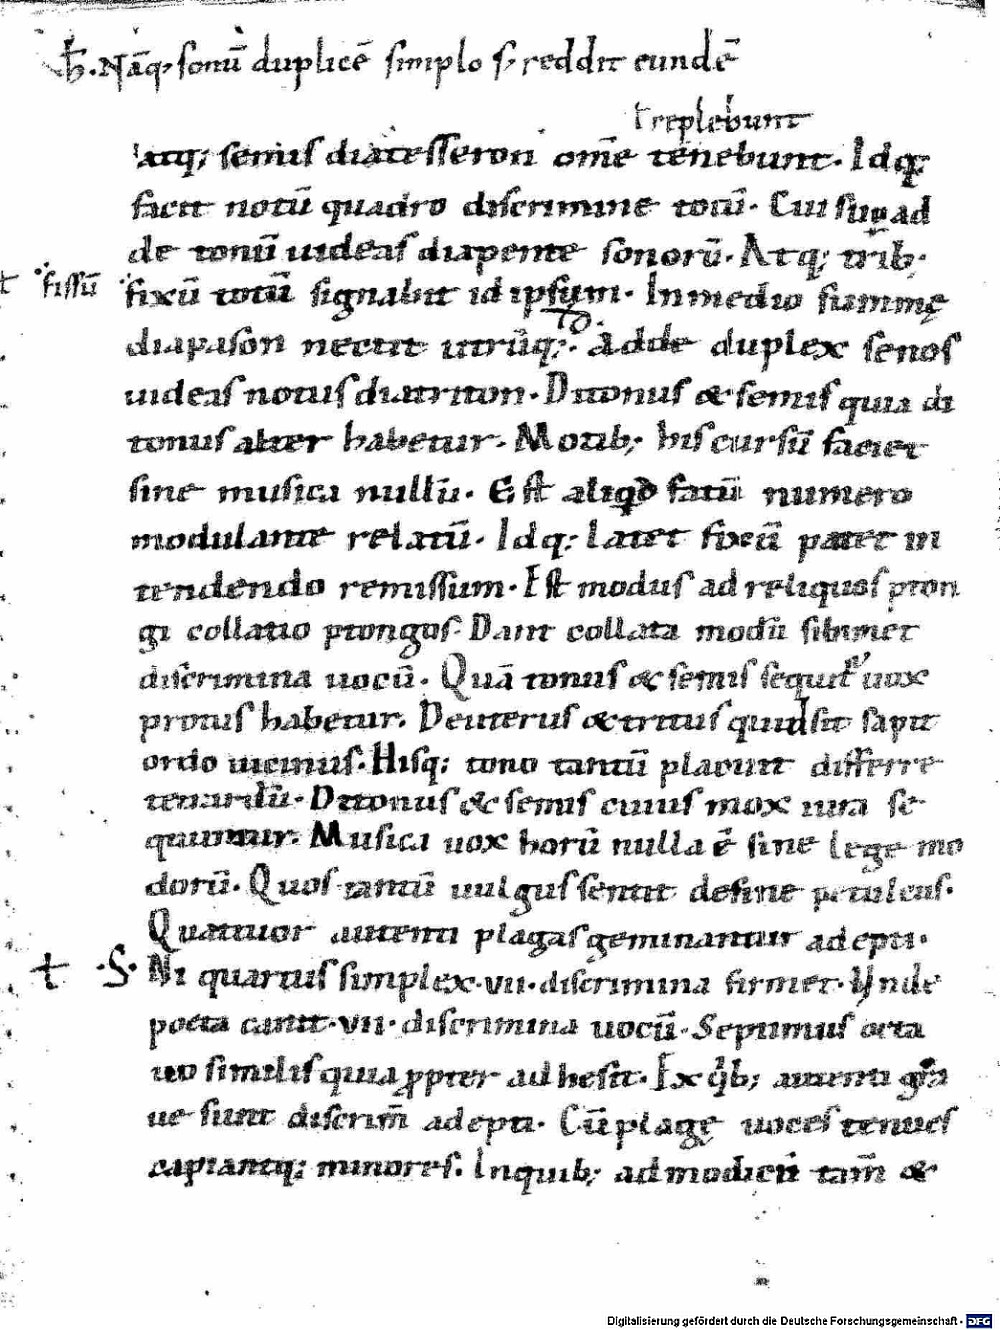 h̄. Nāq; sonū duplicē simplo s; reddit eundē
ł replebunt
atq; semis diatesseron om̄e tenebunt. Idq;
facit notū quadro discrimine totū. Cui sup ad
de tonū uideas diapente sonorū. Atq; trib;
ł fissū fixū totū signabit id ipsum. In medio summę
diapason nectit utrūq;. Adde duplex senos
uideas notus diatriton. Ditonus & semis quia di
tonus alter habetur. Motib; his cursū faciet
sine musica nullū. Est aliqđ fatū numero
modulante relatū. Idq; latet fixū patet in
tendendo remissum. Est modus ad reliquos pton
gi collatio ptongos. Dant collata modū sibimet
discrimina uocū. Quā tonus & semis sequit̄ uox
protus habetur. Deuterus & tritus quid sit sapit
ordo uicinus. Hisq; tono tantū placuit differre
tenardū. Ditonus & semis cuius mox iura se
quuntur. Musica uox horū nulla ē sine lege mo
dorū. Quos tantū uulgus sentit define petulcus.
Quattuor autenti plagas geminantur adepti.
ł .S. Ni quartus simplex .vii. discrimina firmet. Vnde
poeta canit .vii. discrimina uocū. Septimus octa
uo similis quia ꝓpter adhesit. Ex qib; autenti gra
ue sunt discrim̄ adepti. Cū plagę uoces tenues
capiantq; minores. In quib; ad modicū tam̄ &
Digitalisierung gefördert durch die Deutsche Forschungsgemeinschaft - DFG